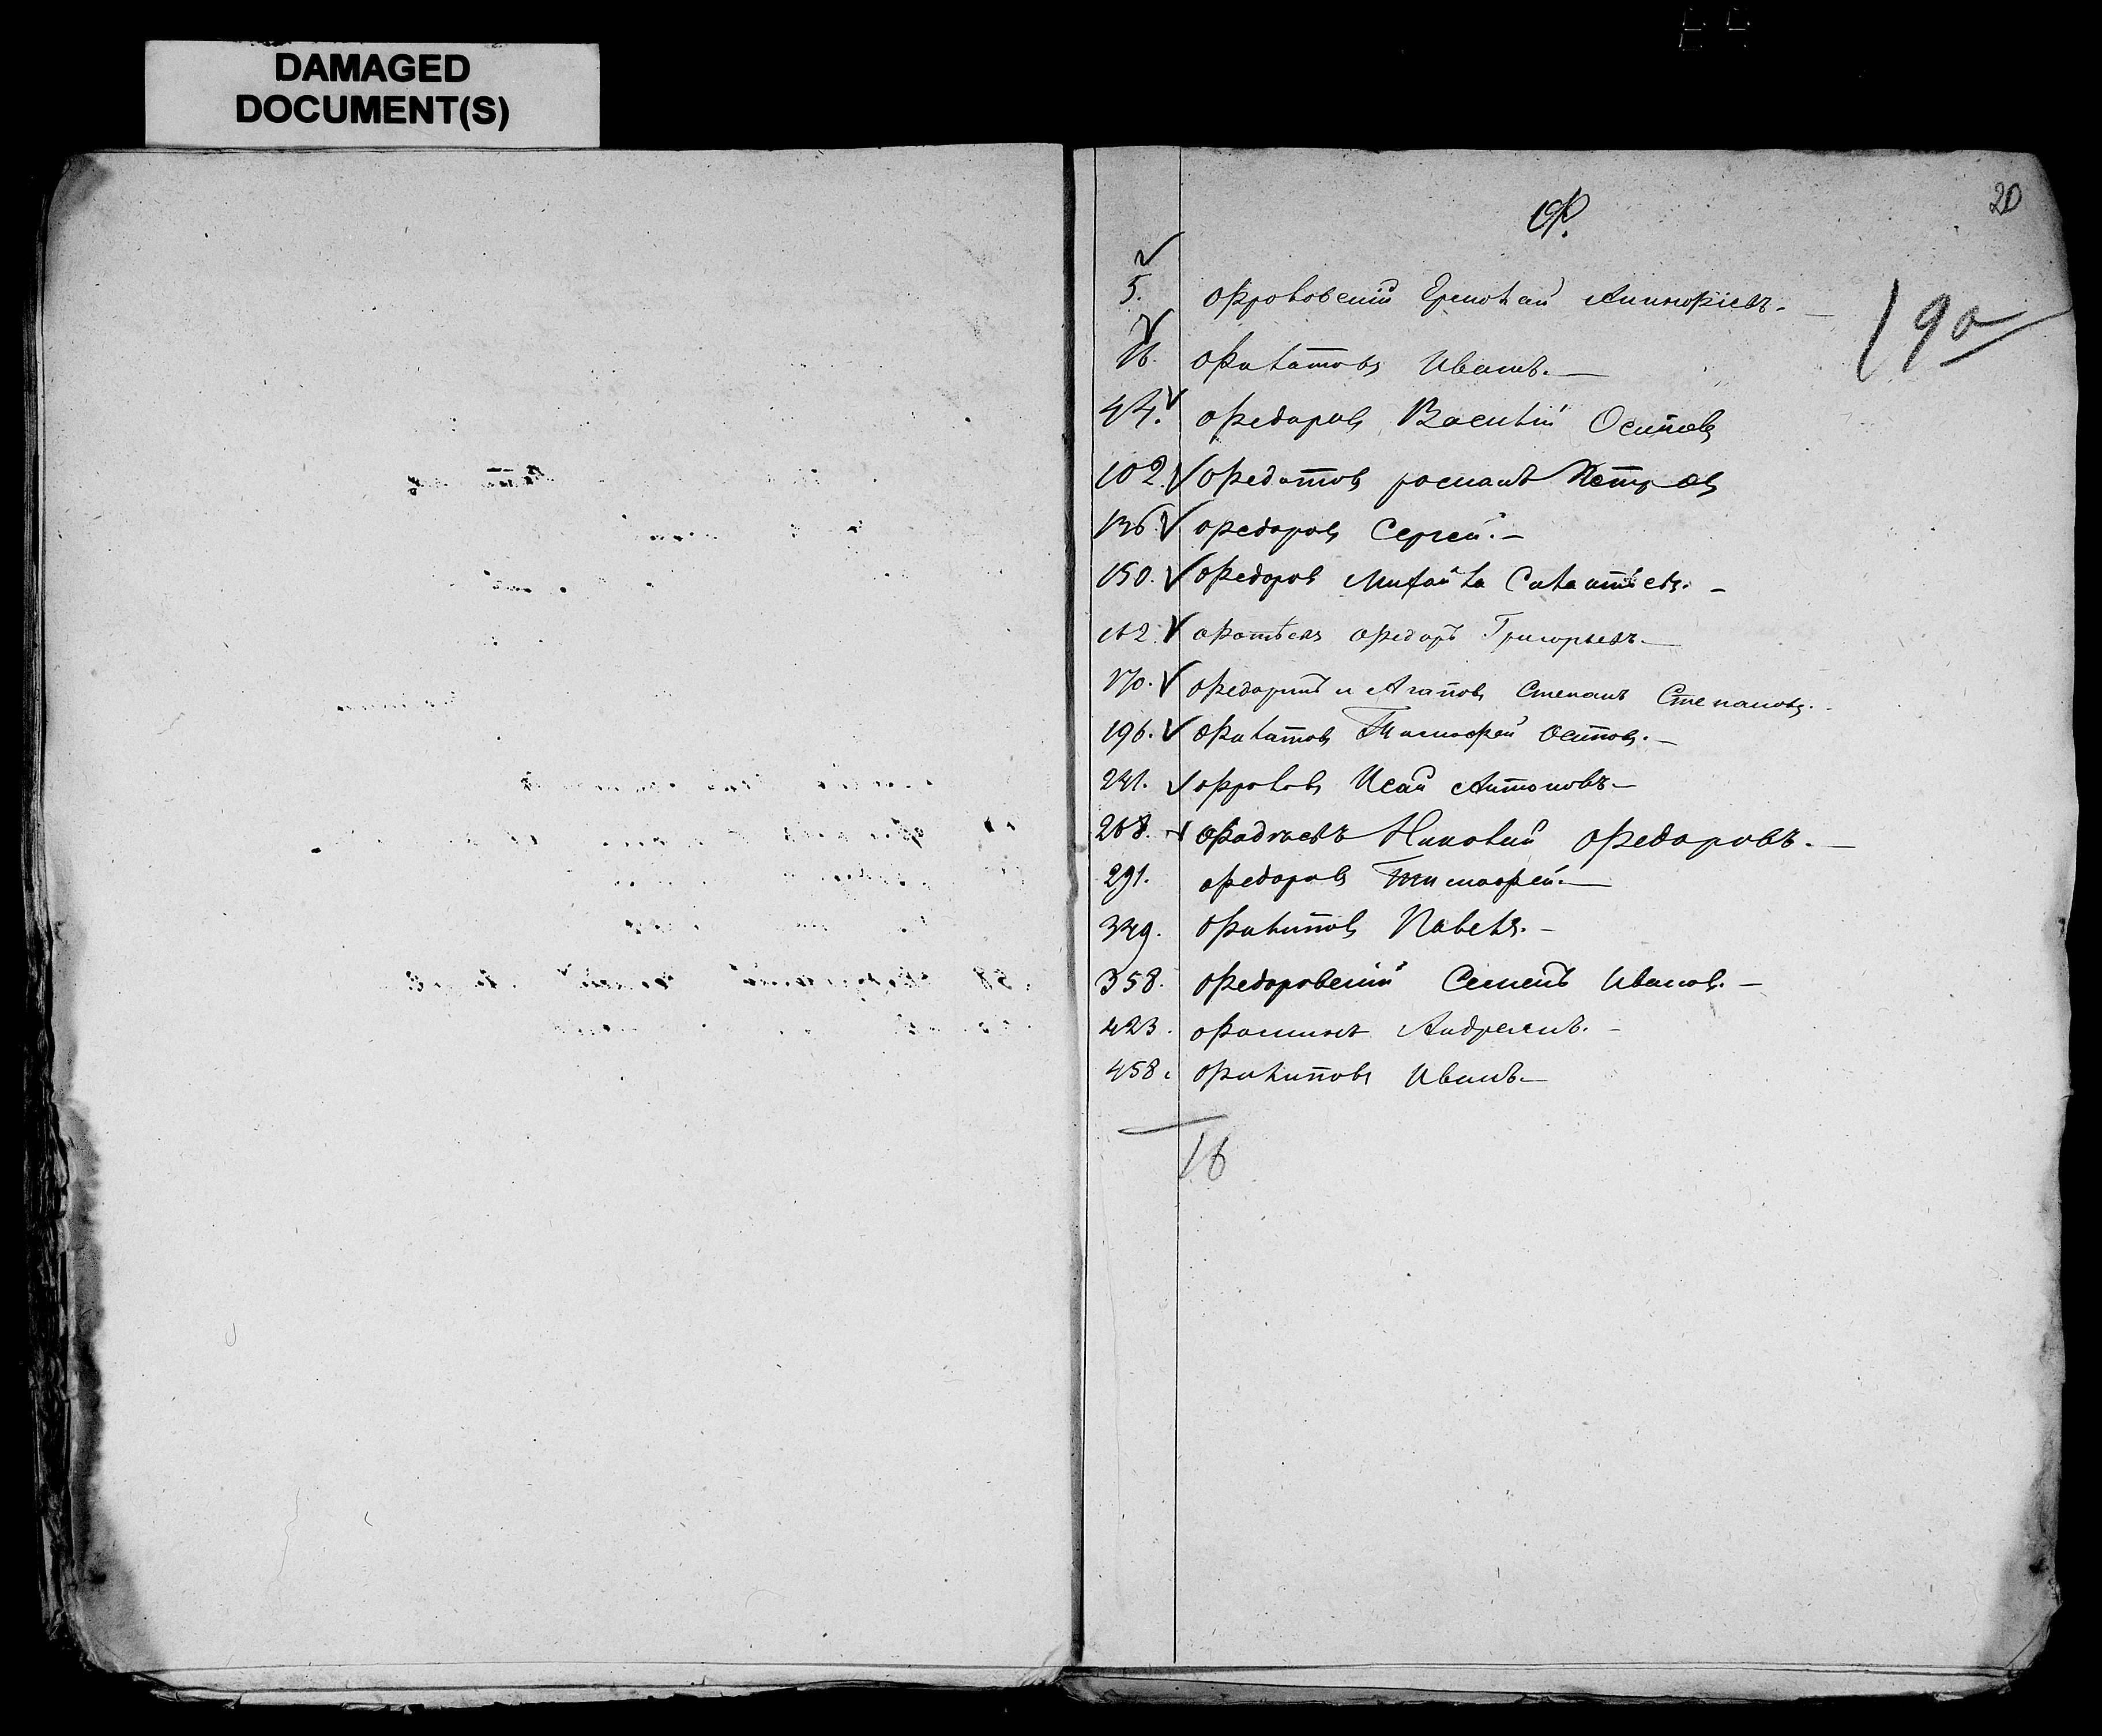 DAMAGED
DOCUMENT(S)
20
Ф.
190
5. Фроловскій Ермолай
16. Филатовъ Иванъ.—
44. Федоровъ Василій Осиповъ
102. Федотовъ романъ Петровъ
136 Федоровъ Сергей.—
150. Федоровъ Михайла Савантьевъ.—
162 Фотѣевъ Федоръ Григорьевъ—
170. Федоринъ и Агаповъ Степанъ Степановъ.
196. Филатовъ Тимофей Осиповъ.—
241. Фроловъ Исай Антоновъ—
268. Фадѣевъ Николай Федоровъ.—
291. Федоровъ Тимофей.—
349. Филиповъ Павелъ.—
358. Федоровскій Семенъ Ивановъ.—
423. Фоминъ Андреянъ.—
458. Филиповъ Иванъ.—
16